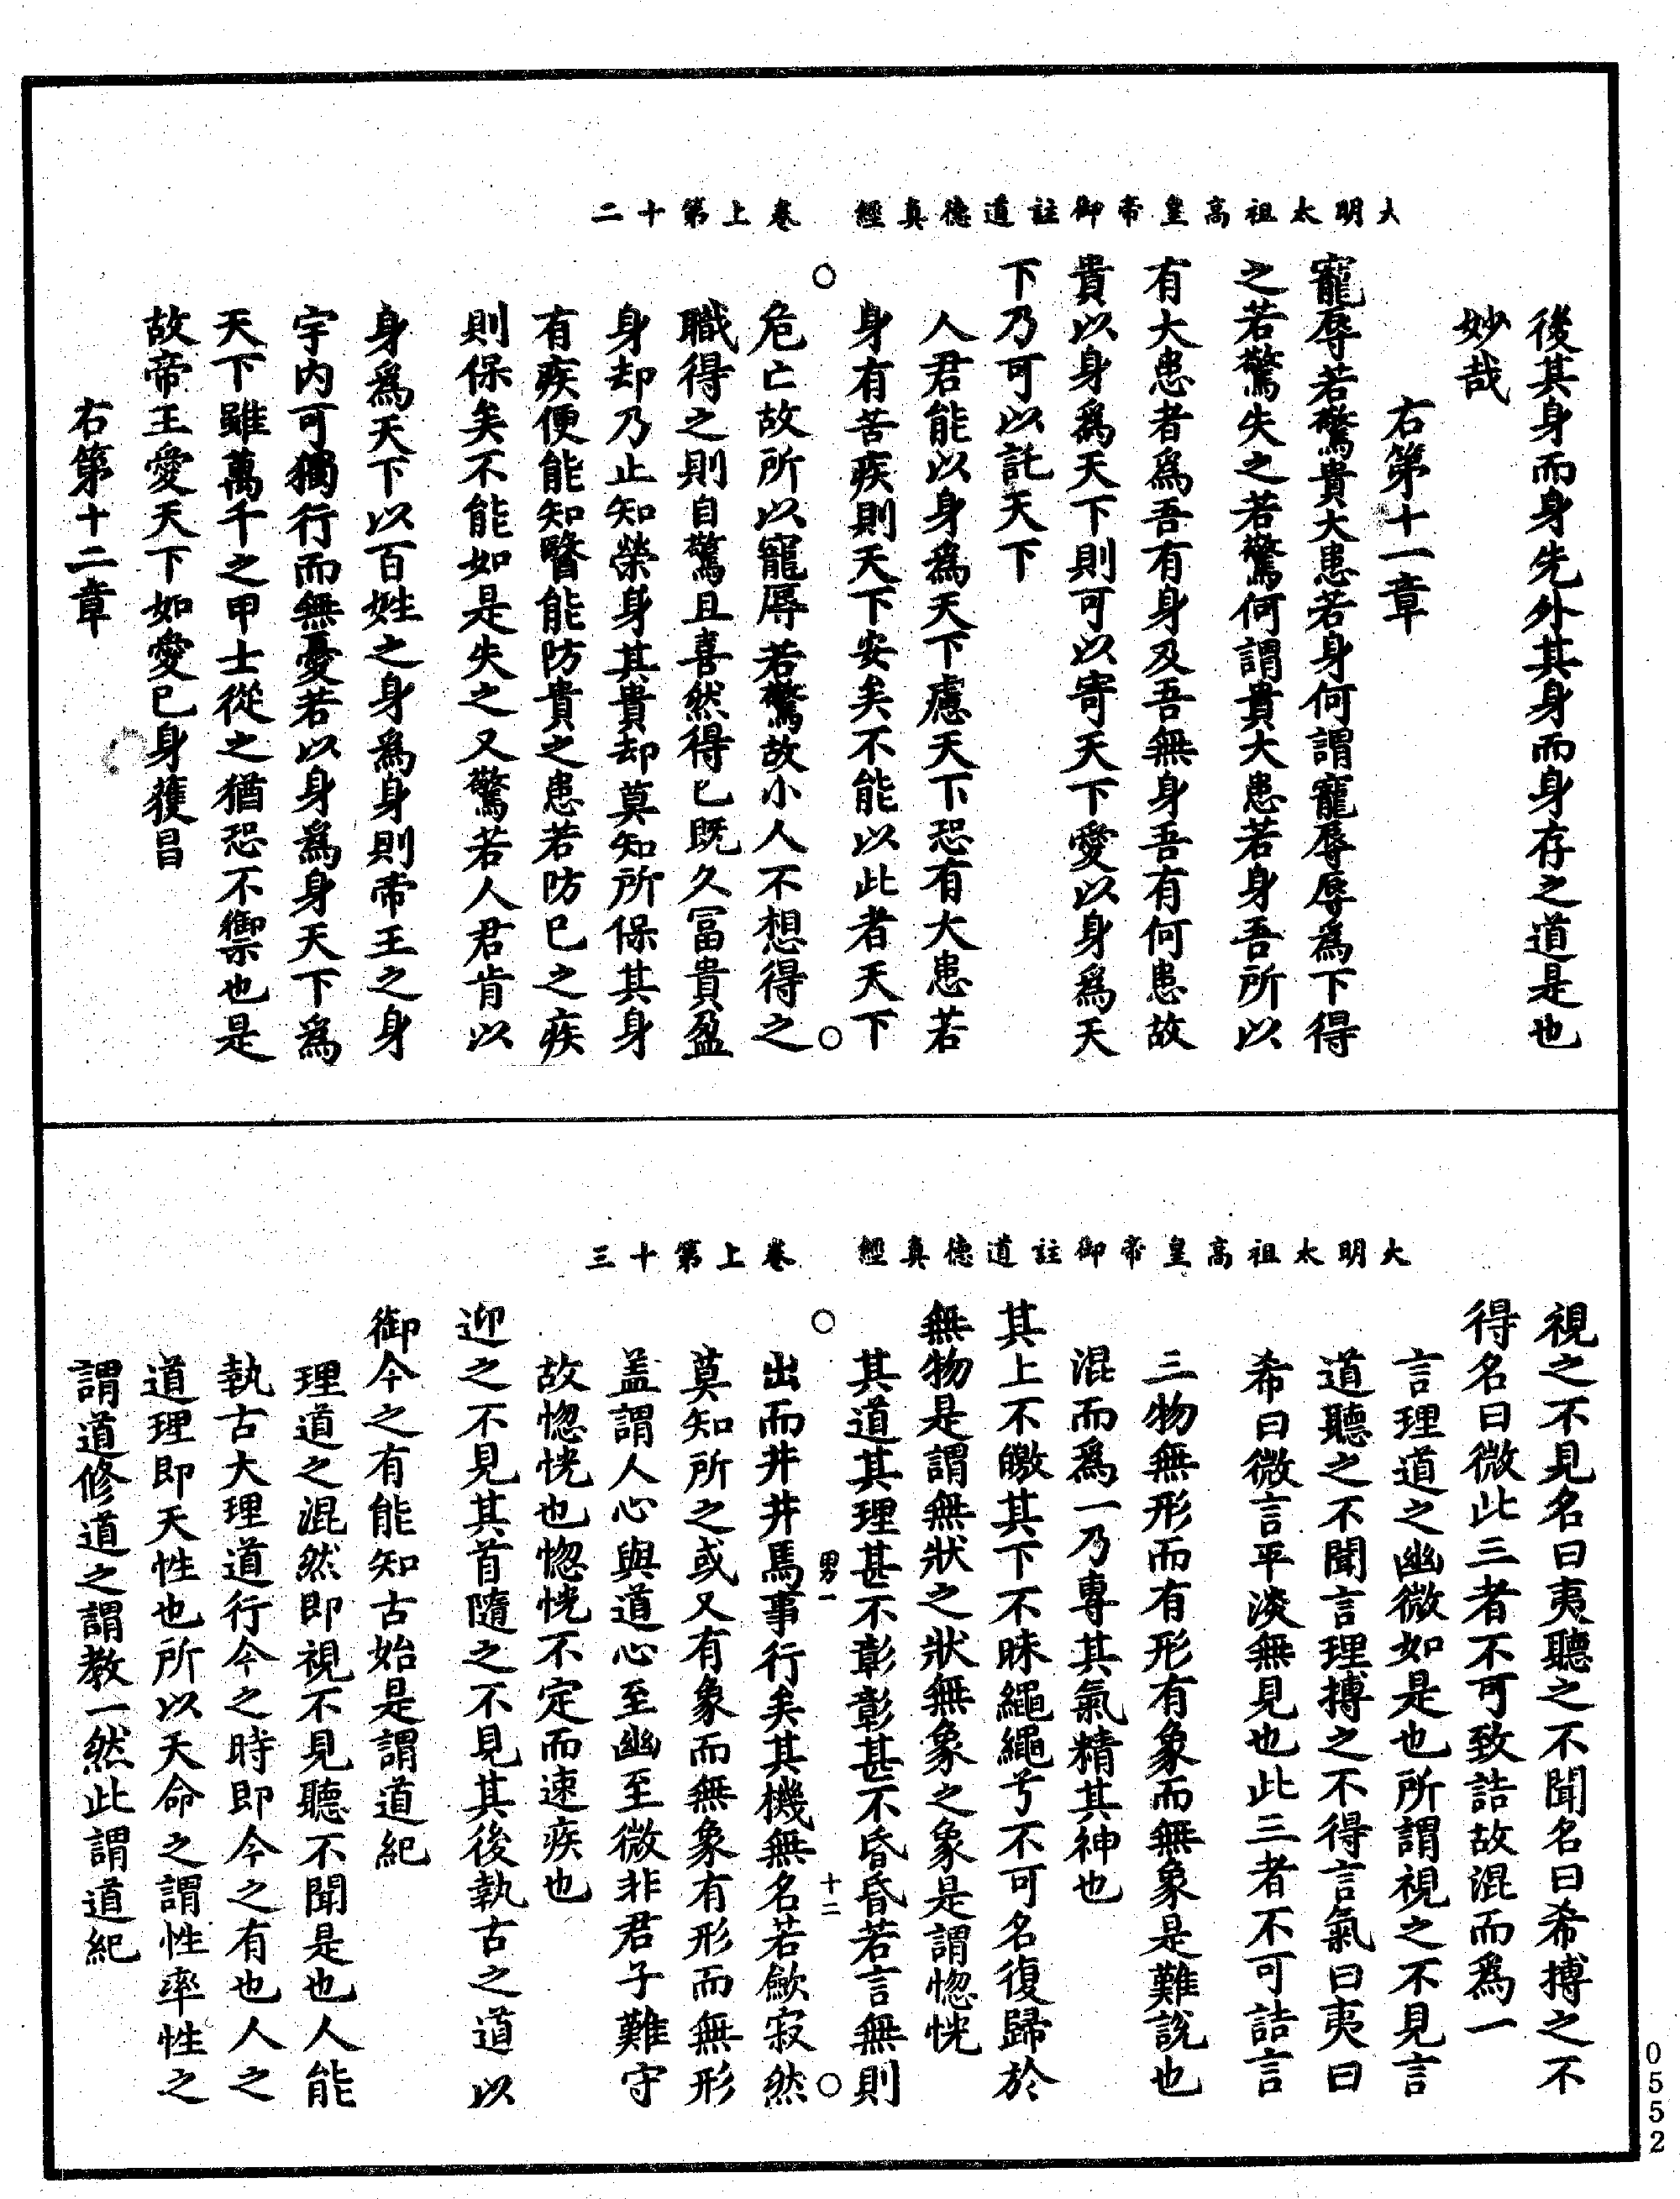 大明太祖高皇帝御註道德真經　卷上第十二
後其身而身先外其身而身存之道是也
妙哉
右第十一章
寵辱若驚貴大患若身何謂寵辱辱為下得
之若驚失之若驚何謂貴大患若身吾所以
有大患者為吾有身及吾無身吾有何患故
貴以身為天下則可以寄天下愛以身為天
下乃可以託天下
人君能以身為天下慮天下恐有大患若
身有苦疾則天下安矣不能以此者天下
危亡故所以寵辱若驚故小人不想得之
職得之則自驚且喜然得已既久冨貴盈
身却乃止知榮身其貴却莫知所保其身
有疾便能知瞖能防貴之患若防已之疾
則保矣不能如是失之又驚若人君肯以
身為天下以百姓之身為身則帝王之身
宇內可獨行而無憂若以身為身天下為
天下雖萬千之甲士從之猶恐不禦也是
故帝王愛天下如愛已身獲昌
右第十二章
大明太祖高皇帝御註道德真經　卷上第十三
視之不見名曰夷聽之不聞名曰希搏之不
得名曰微此三者不可致詰故混而為一
言理道之幽微如是也所謂視之不見言
道聽之不聞言理搏之不得言氣曰夷曰
希曰微言平淡無見也此三者不可詰言
三物無形而有形有象而無象是難說也
混而為一乃專其氣精其神也
其上不皦其下不昧繩繩兮不可名復歸於
無物是謂無狀之狀無象之象是謂惚恍
其道其理甚不彰彰甚不昏昏若言無則
男一
十二
出而井井焉事行矣其機無名若歛寂然
莫知所之或又有象而無象有形而無形
盖謂人心與道心至幽至微非君子難守
故惚恍也惚恍不定而速疾也
迎之不見其首隨之不見其後執古之道以
御今之有能知古始是謂道紀
理道之混然即視不見聽不聞是也人能
執古大理道行今之時即今之有也人之
道理即天性也所以天命之謂性率性之
謂道修道之謂教一然此謂道紀
0552